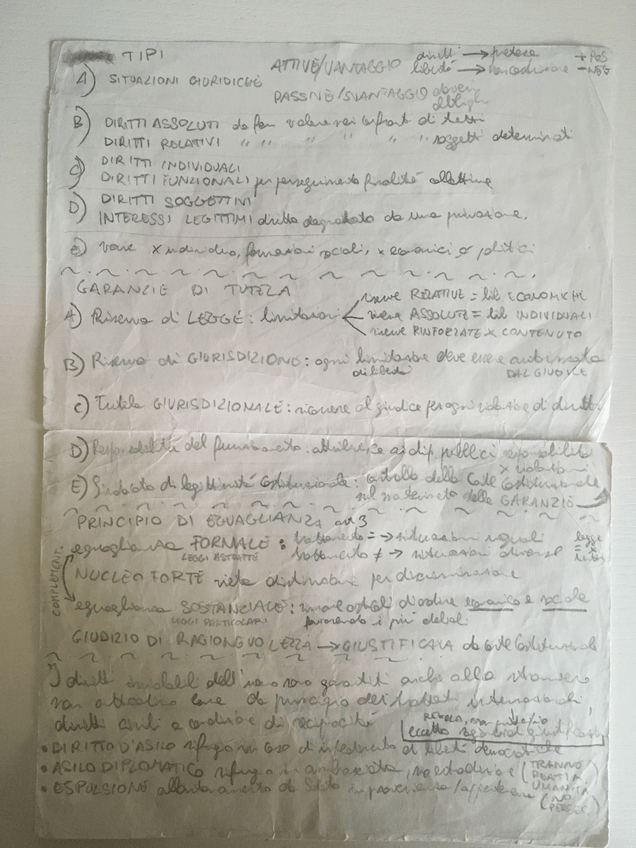 TIPI
A) SITUAZIONI GIURIDICHE
ATTIVE/VANTAGGIO diritti → pretesa + POS
libertà → non - NEG
PASSIVE/SVANTAGGIO doveri
obblighi
B) DIRITTI ASSOLUTI da far valere nei confronti di tutti
DIRITTI RELATIVI " " " " " " soggetti determinati
C) DIRITTI INDIVIDUALI
DIRITTI FUNZIONALI per perseguimento finalità collettive
D) DIRITTI SOGGETTIVI
INTERESSI LEGITTIMI diritto degradato da una
E) varie x individuo, formazioni sociali, x economici o politici
GARANZIE DI TUTELA
A) Riserva di LEGGE: limitazioni
riserve RELATIVE = lib ECONOMICHE
riserve ASSOLUTE = lib INDIVIDUALI
riserve RINFORZATE x CONTENUTO
B) Riserva di GIURISDIZIONE: ogni limitazione deve essere autorizzata
di libertà DAL GIUDICE
C) Tutela GIURISDIZIONALE: ricorrere al giudice per ogni violazione di diritti
D) Responsabilità del funzionario: attribuisce ai dip. pubblici responsabilità
x violazioni
E) Sindacato di legittimità Costituzionale: controllo della Corte Costituzionale
sul delle GARANZIE
PRINCIPIO DI EGUAGLIANZA art 3
eguaglianza FORMALE: trattamento = → situazioni uguali
LEGGI ASTRATTE trattamento ≠ → situazioni diverse
legge
= x
tutti
COMPLEMENT.
NUCLEO FORTE vieta distinzione per discriminazione
eguaglianza SOSTANZIALE: rimuove ostacoli d'ordine economico e sociale
LEGGI PARTICOLARI favorendo i più deboli
GIUDIZIO DI RAGIONEVOLEZZA → GIUSTIFICATA da Corte Costituzionale
I diritti inviolabili dell'uomo sono garantiti anche allo straniero
non in base da principio dei trattati internazionali,
diritti civili a condizione di reciprocità
REGOLA, ma
eccetto
• DIRITTO D'ASILO rifugio in caso di impedimento di libertà democratiche
• ASILO DIPLOMATICO rifugio in ambasciata, no estradizione (TRANNE
REATI
UMANITÀ
• ESPULSIONE allontanamento da Stato
(NO
PERSEC.)